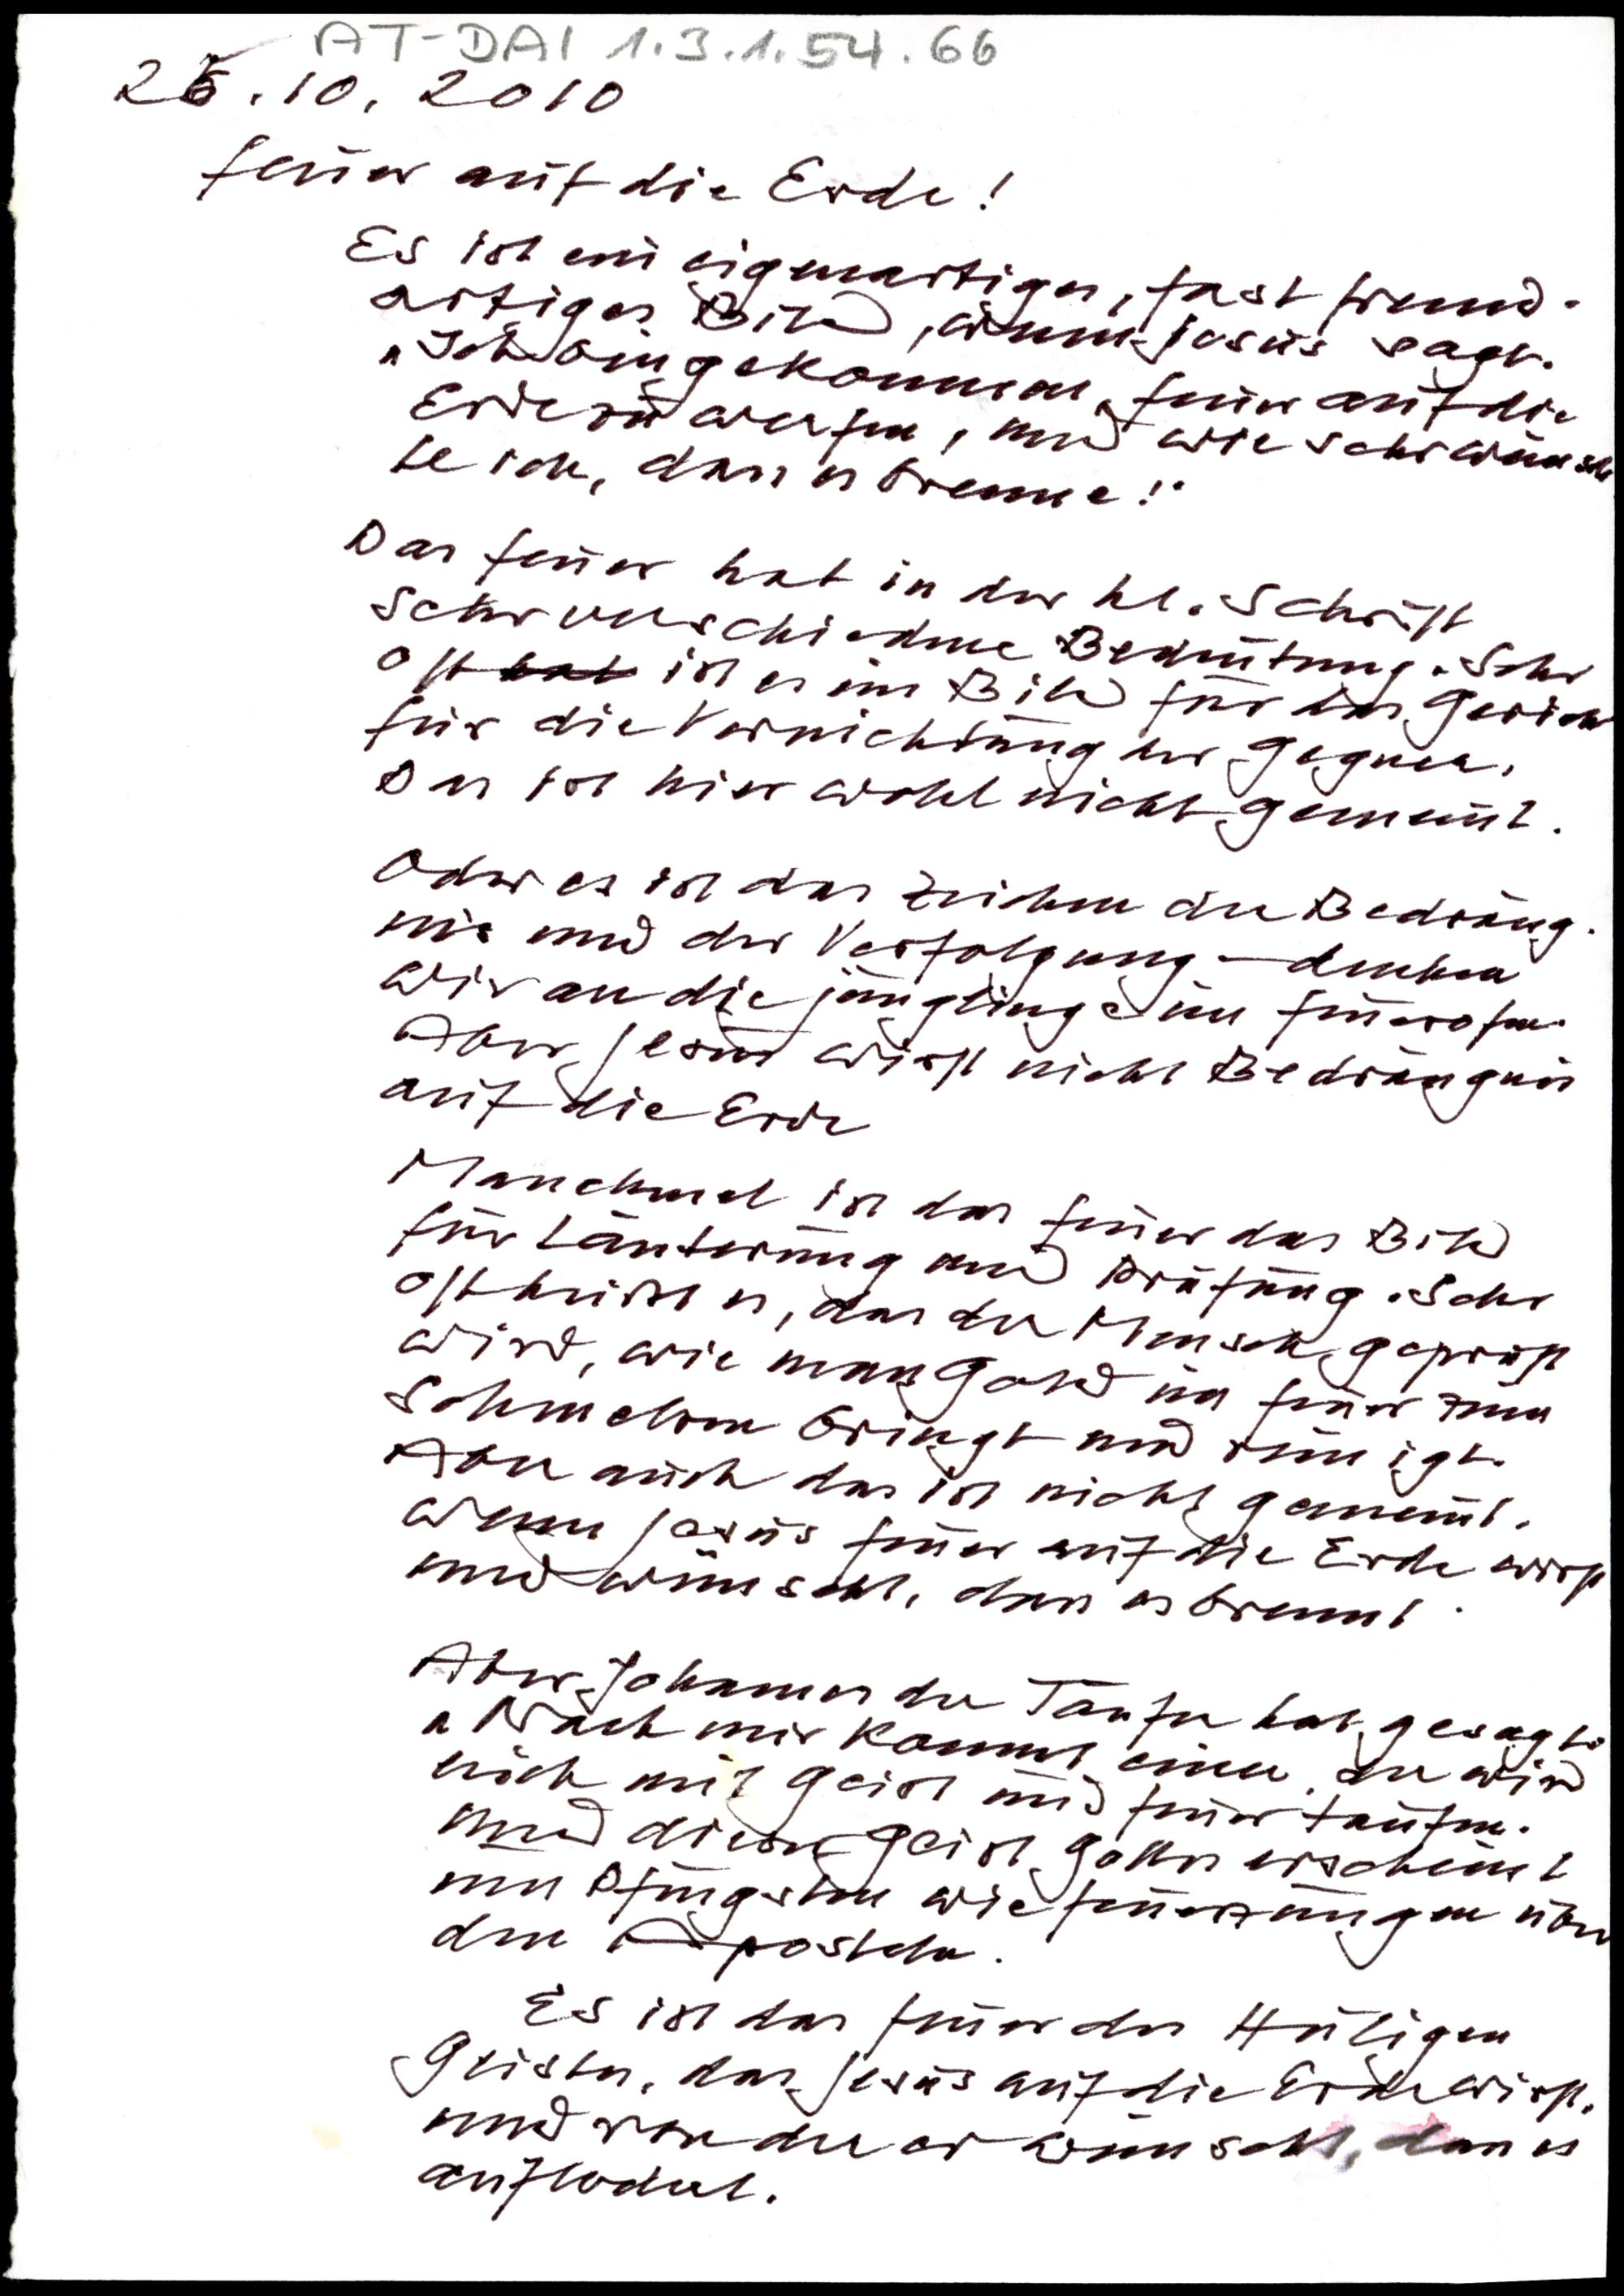 AT-DAI 1.3.1.54.66
26.10.2010
Feuer auf die Erde!
Es ist ein eigenartiges, fast fremd-
artiges Bild, wenn Jesus sagt:
"Ich bin gekommen, Feuer auf die
Erde zu werfen, und wie sehr wünsch
te ich, dass es brenne!"
Das Feuer hat in der hl. Schrift
sehr verschiedene Bedeutung. Sehr
oft hat ist es ein Bild für das Gericht
für die Vernichtung der Gegner.
Das ist hier wohl nicht gemeint.
Oder es ist das Zeichen der Bedräng-
nis und der Verfolgung – denken
wir an die Jünglinge im Feuerofen.
Aber Jesus wirft nicht Bedrängnis
auf die Erde
Manchmal ist das Feuer das Bild
für Läuterung und Prüfung. Sehr
oft heißt es, das der Mensch geprüft
wird, wie man Gold im Feuer zum
Schmelzen bringt und reinigt.
Aber auch das ist nicht gemeint,
wenn Jesus Feuer auf die Erde wirft
und wünscht, dass es brennt.
Aber Johannes der Täufer hat gesagt:
"Nach mir kommt einer, der wird
euch mit Geist und Feuer taufen.
Und dieser Geist Gottes erscheint
nun Pfingsten wie Feuerzungen über
den Aposteln.
Es ist das Feuer des Heiligen
Geistes, das Jesus auf die Erde wirft,
und von der er wünscht, dass es
auflodert.